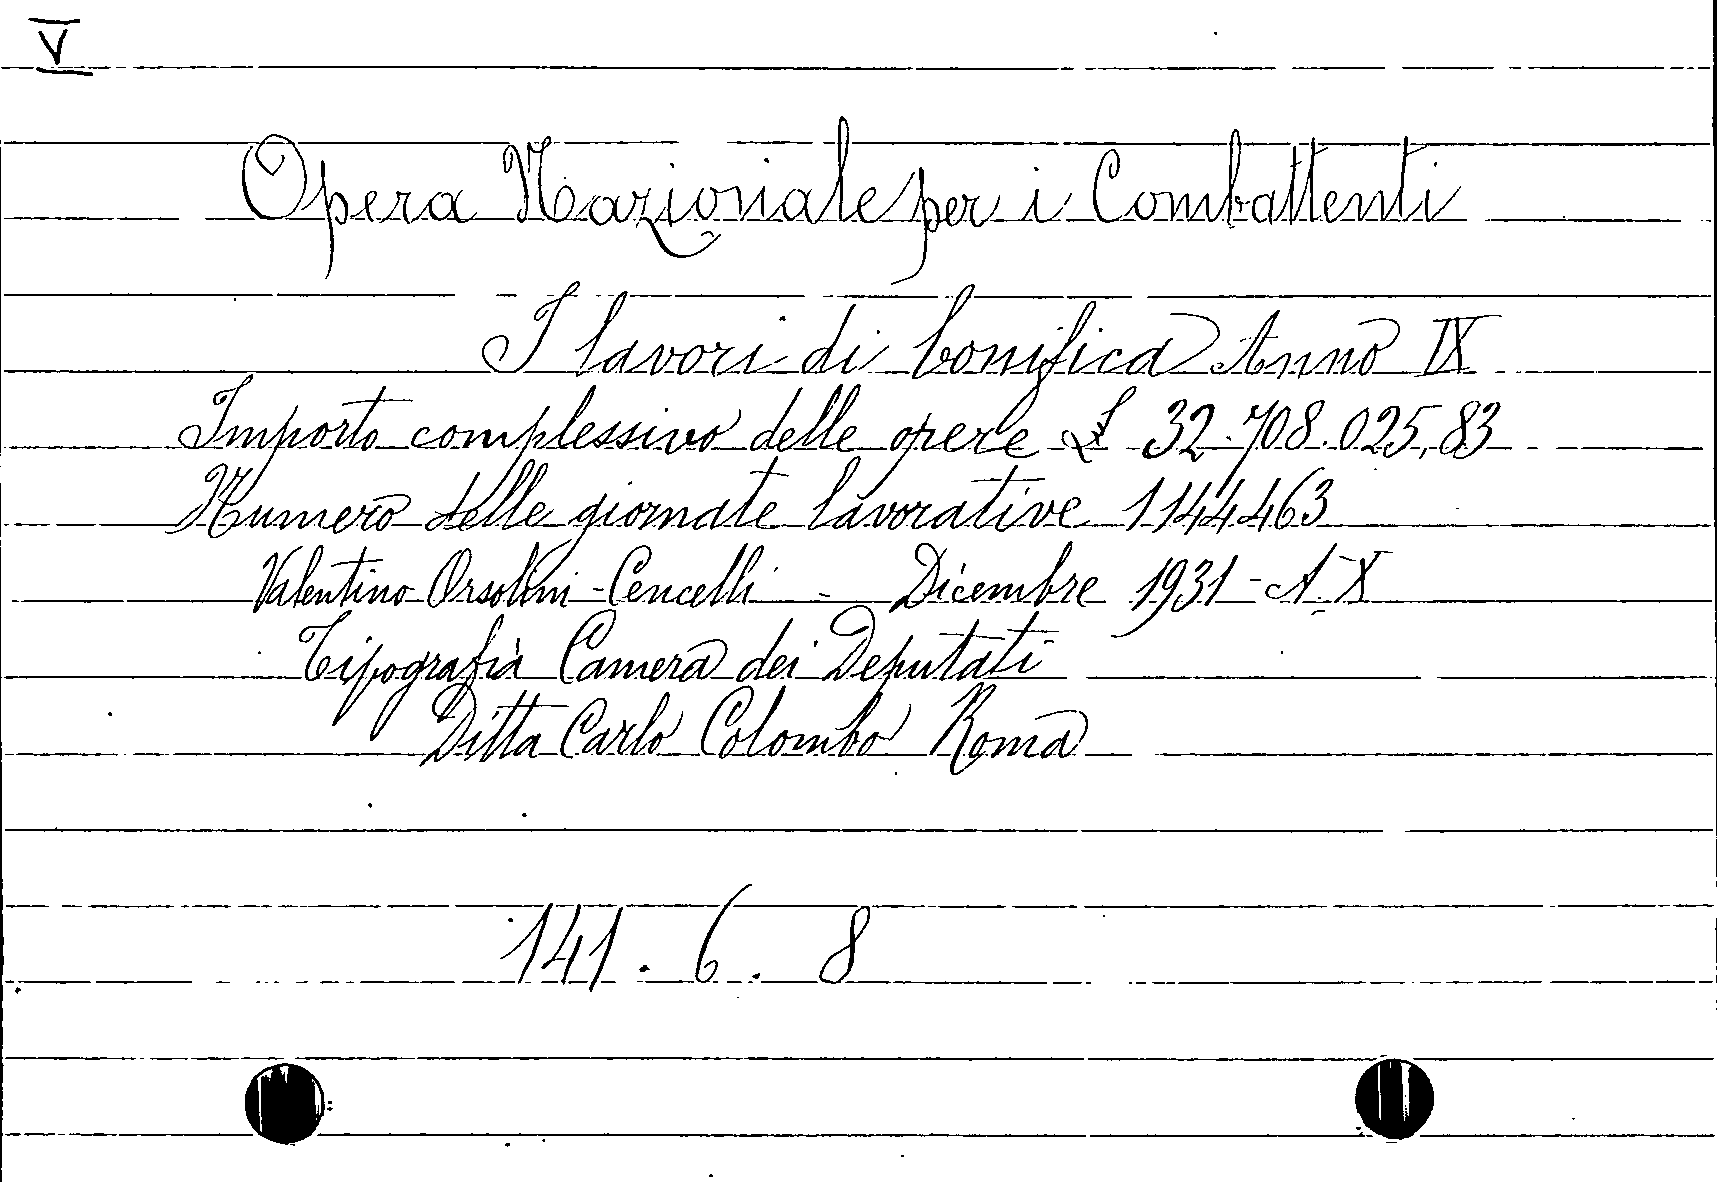 V
Opera Nazionale per i Combattenti
I lavori di bonifica Anno IX
Importo complessivo delle opere £ 32.708.025,83
Numero delle giornate lavorative 1144463
Valentino Orsolini-Cencelli - Dicembre 1931 - A. X
Tipografia Camera dei Deputati
Ditta Carlo Colombo Roma
141. 6. 8